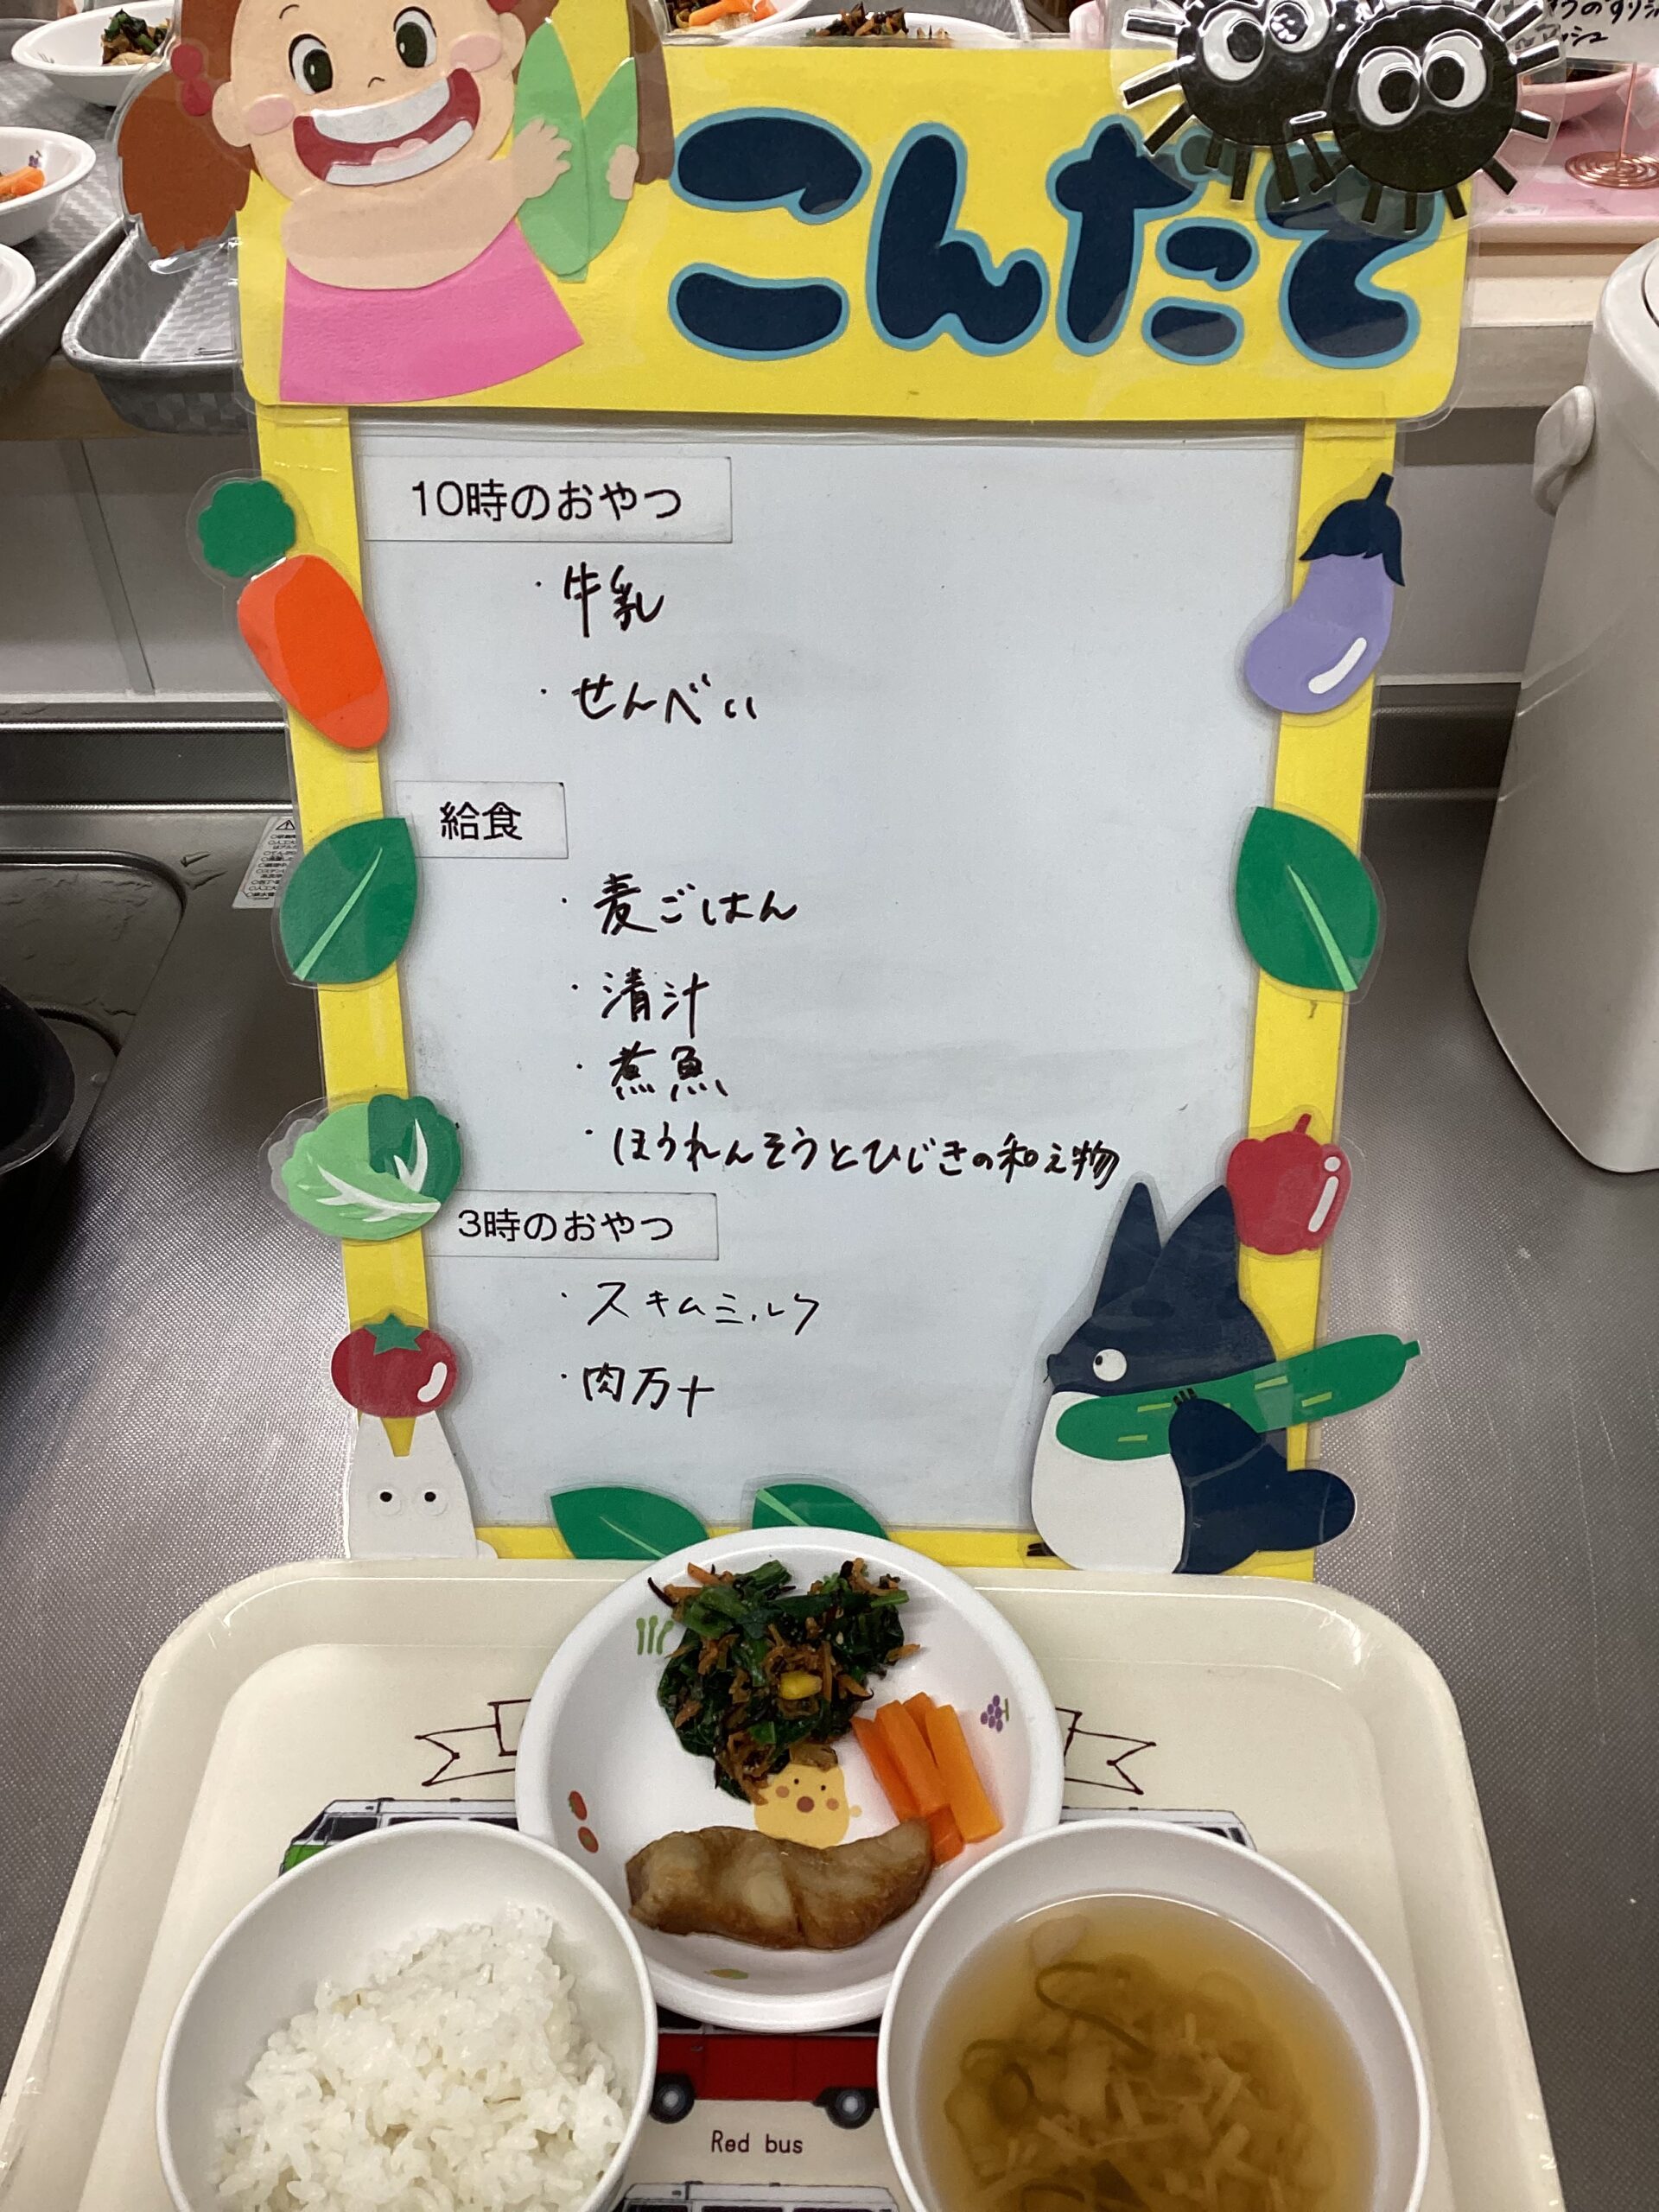 こんだて
10時のおやつ
・牛乳
・せんべい
給食
・麦ごはん
・清汁
・煮魚
・ほうれんそうとひじきの和え物
3時のおやつ
・スキムミルク
・肉万十
Red bus